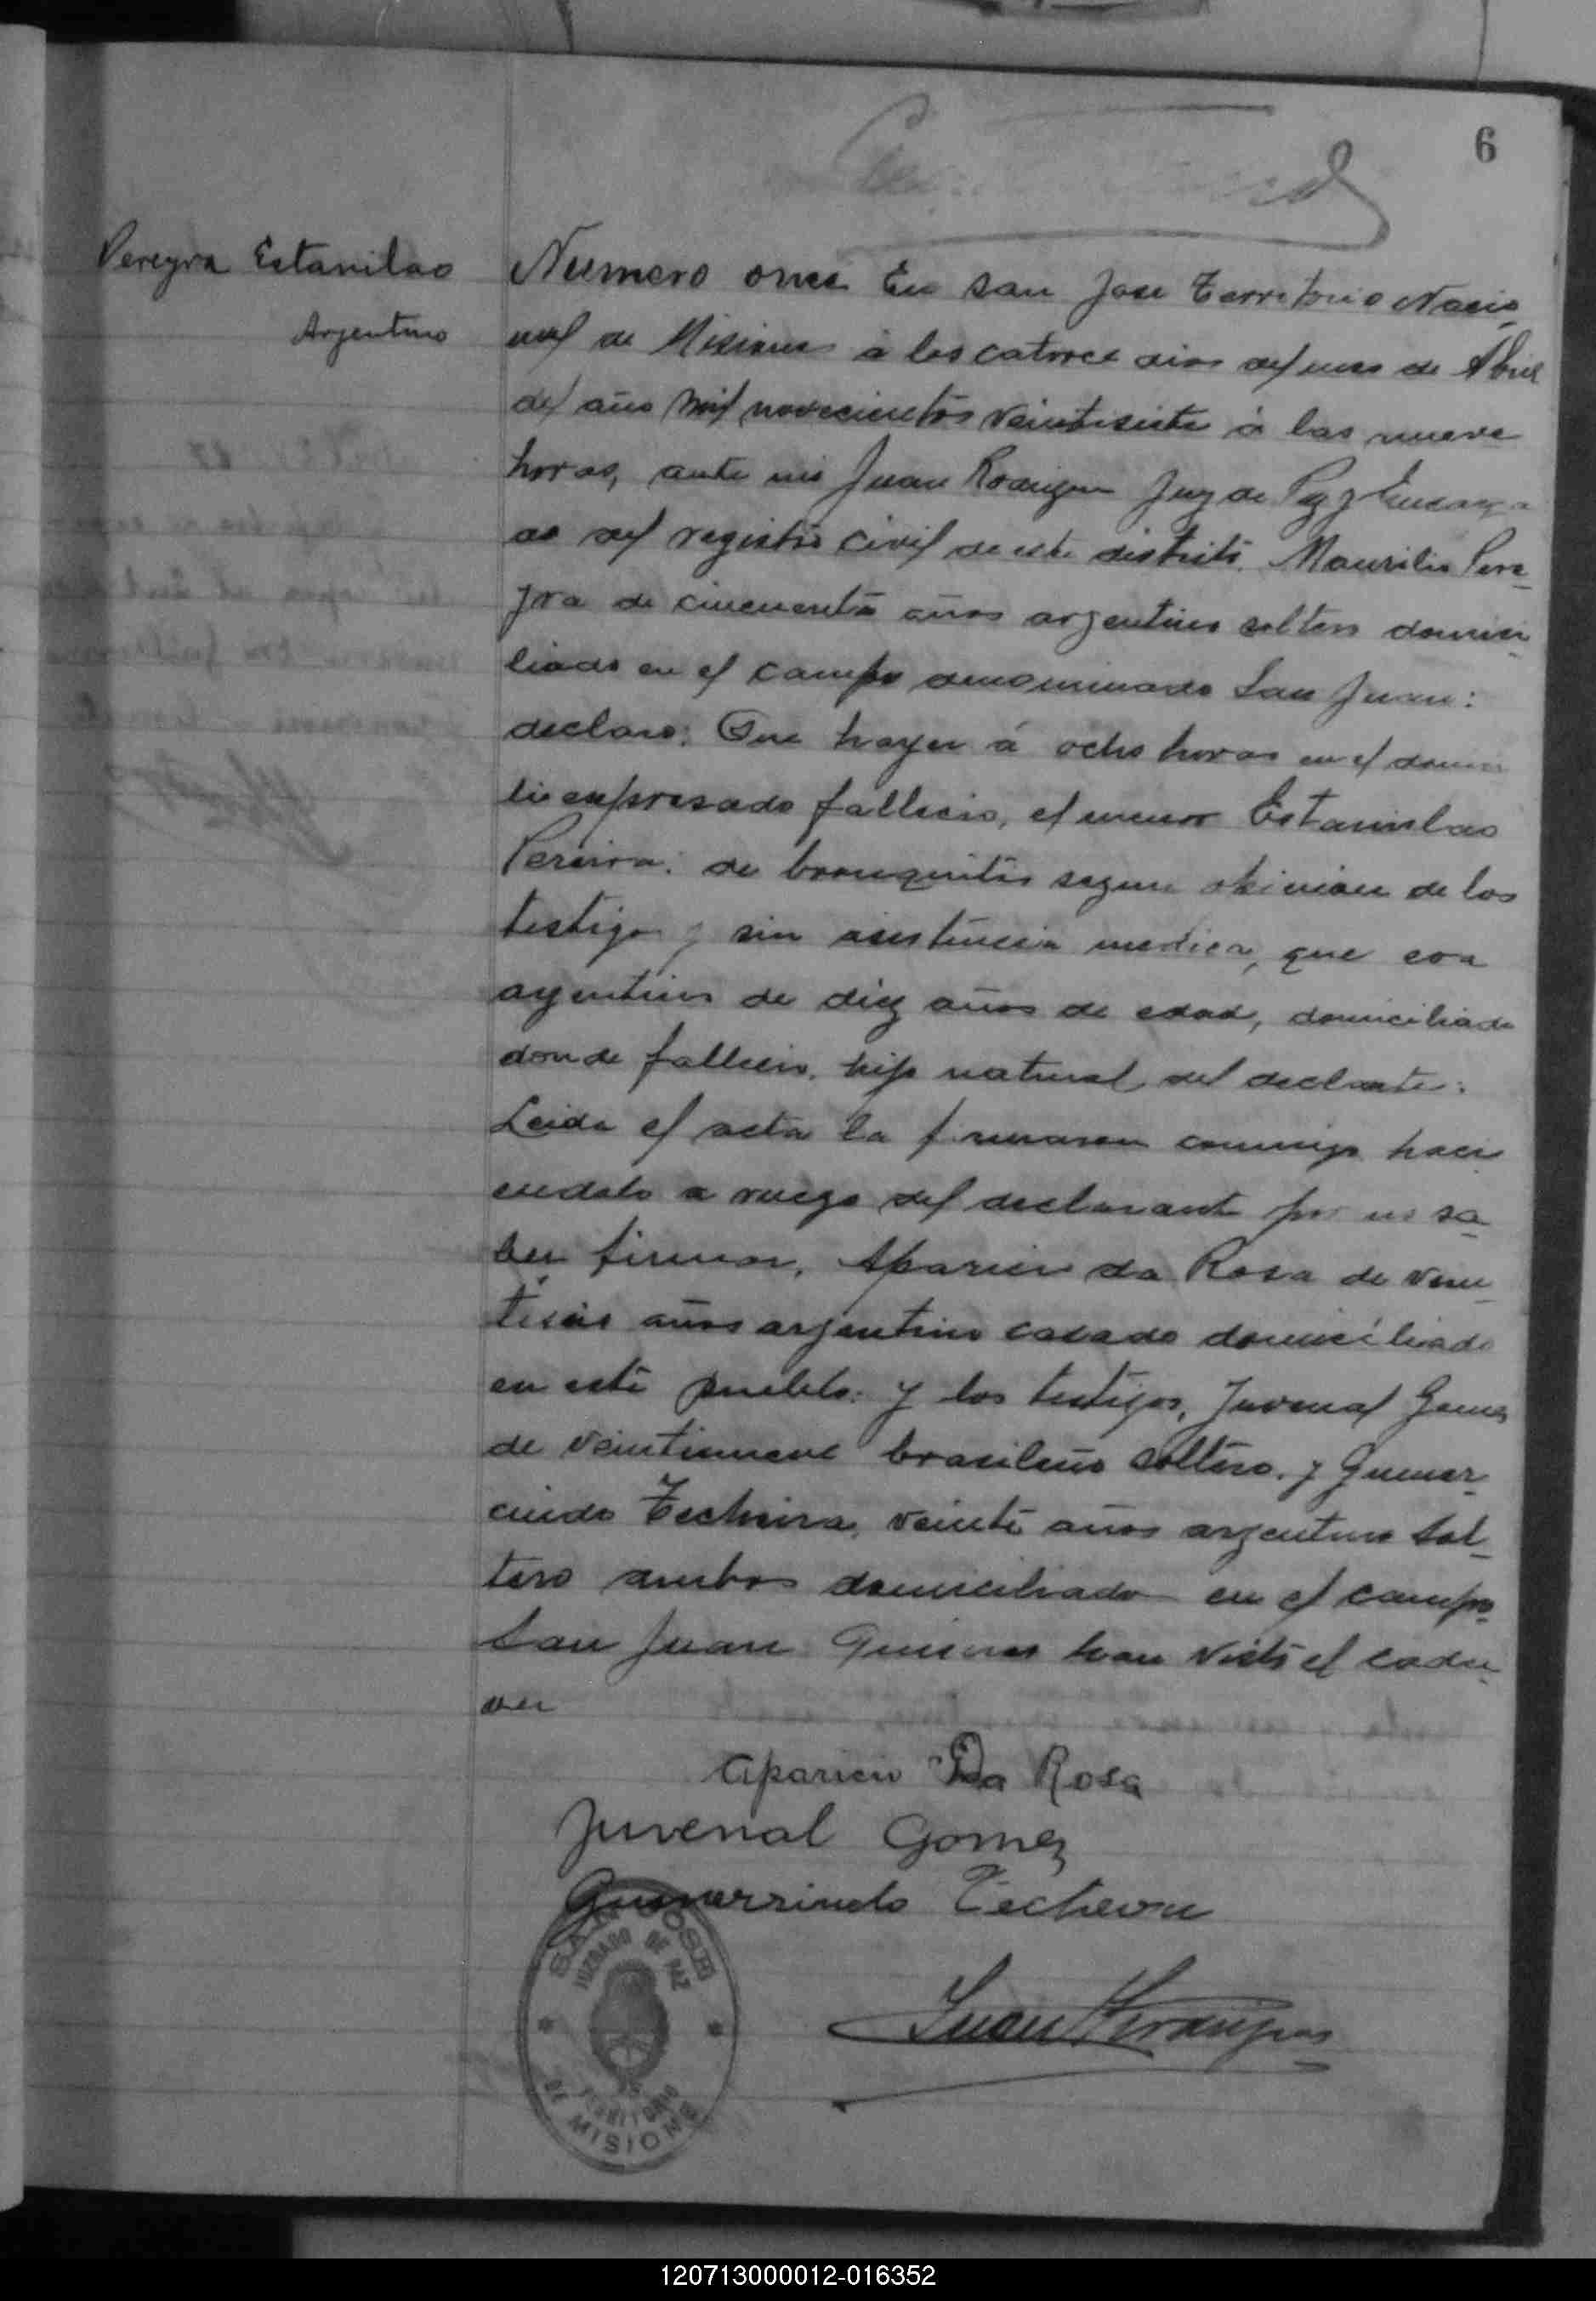 6
Pereyra Estanilao
Argentino
Numero once En San Jose Territorio Nacio
nal de Misiones á los catorce dias del mes de Abril
del año mil novecientos veintisiete á las nueve
horas, ante mi Juan Rodriguez Juez de Paz y Encarga
do del registro civil de este distrito. Maurilio Pere
yra de cincuenta años argentino soltero domici
liado en el campo denominado San Juan:
declaro: Que hayer á ocho horas en el domici
lio expresado fallecio, el menor Estanislao
Pereira: de bronquitis segun opinion de los
testigo y sin asistencia medica, que era
argentino de diez años de edad, domiciliado
donde fallecio, hijo natural del declante:
Leida el acta la firmaron conmigo haci
endolo a ruego del declarante por no sa
ber firmar, Aparicio da Rosa de vein
tiseis años argentino casado domiciliado
en este pueblo: y los testigos, Juvenal Gomez
de veintinueve brasileño soltero. y Gumer
cindo Techeira, veinte años argentino Sol
tero ambos domiciliado en el campo
San Juan Quienes han visto el cada
ver
Aparicio Da Rosa
Juvenal Gomez
Gumersindo Techera
SAN JOSE
JUZGADO DE PAZ
TERRITORIO
DE MISIONES
Juan Rodriguez
120713000012-016352